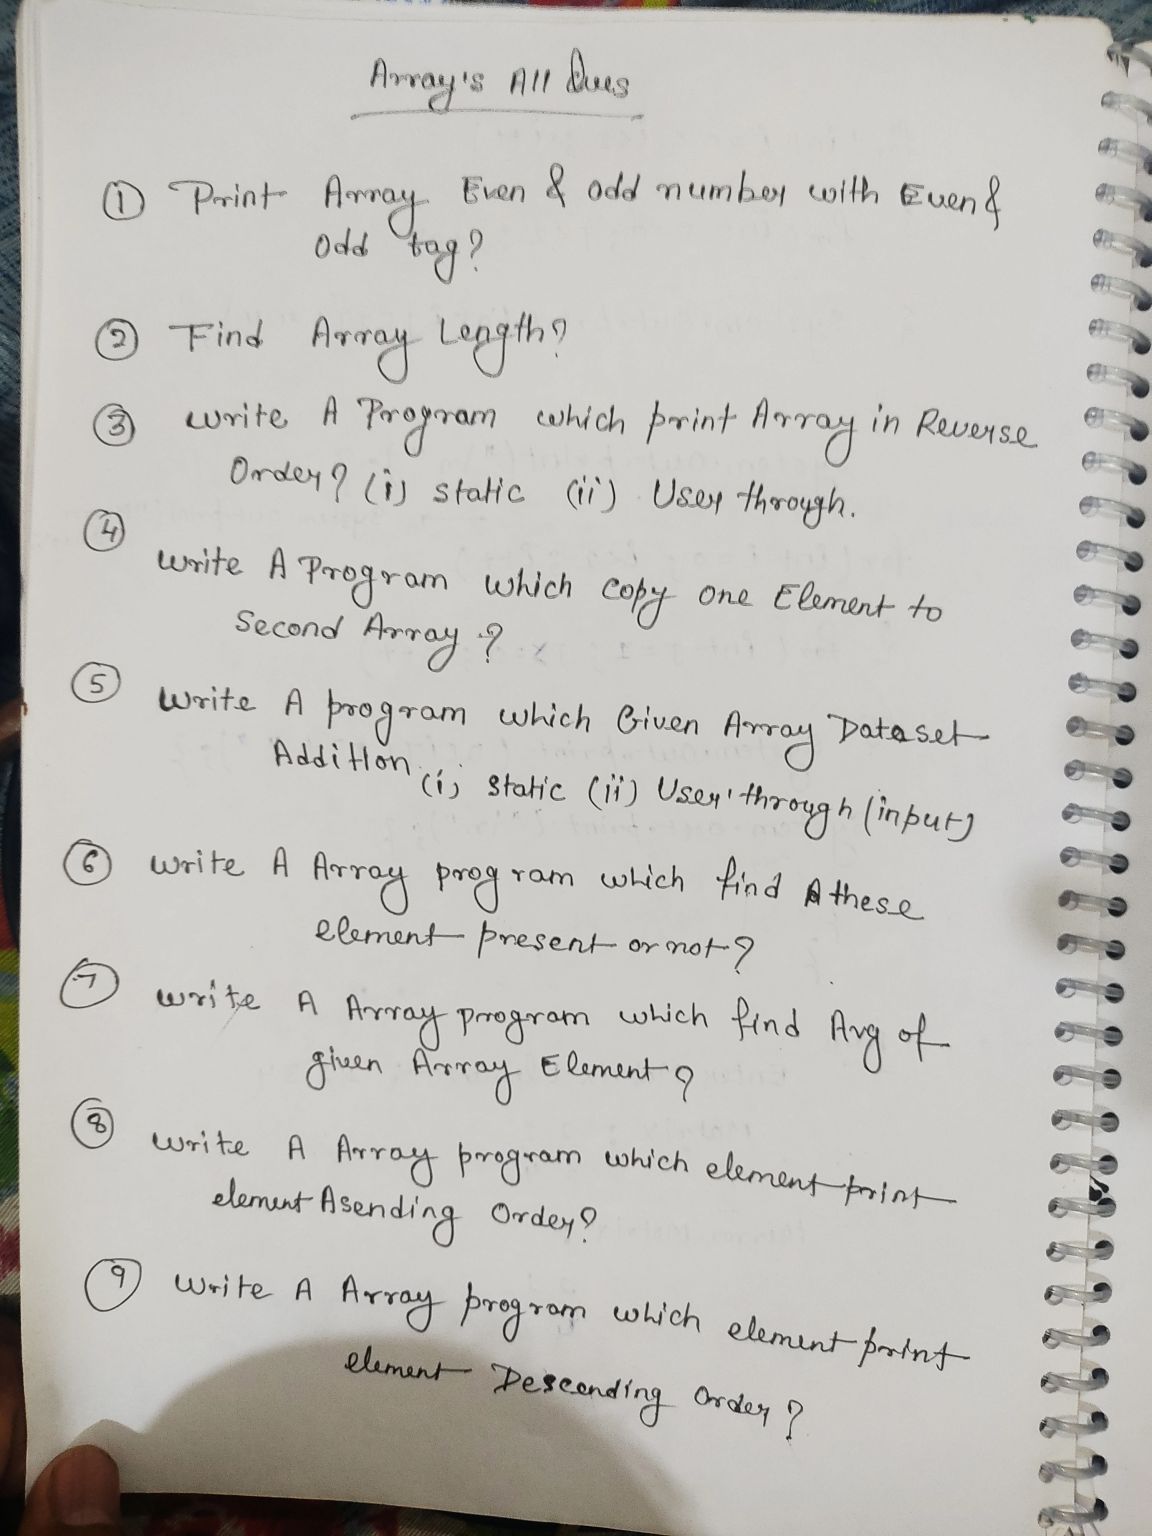 Array's All Ques
① Print Array Even & odd number with Even &
Odd tag?
② Find Array Length?
③ Write A Program which print Array in Reverse
Order? (i) static (ii) User through.
④
Write A Program which copy one Element to
Second Array?
⑤ Write A program which Given Array Dataset
Addition (i) static (ii) User through (input)
⑥ Write A Array program which find these
element present or not?
⑦ Write A Array program which find Avg of
given Array Element?
⑧ Write A Array program which element print
element Asending Order?
⑨ Write A Array program which element print
element Descending Order?